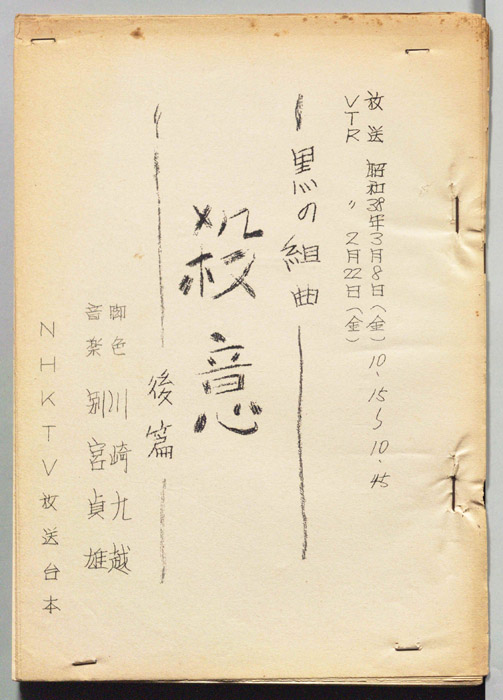 放送 昭和38年3月8日(金) 10.15〜10.45
VTR 〃 2月22日(金)
黒の組曲
殺意
後篇
脚色 川崎九越
音楽 別宮貞雄
NHKTV放送台本